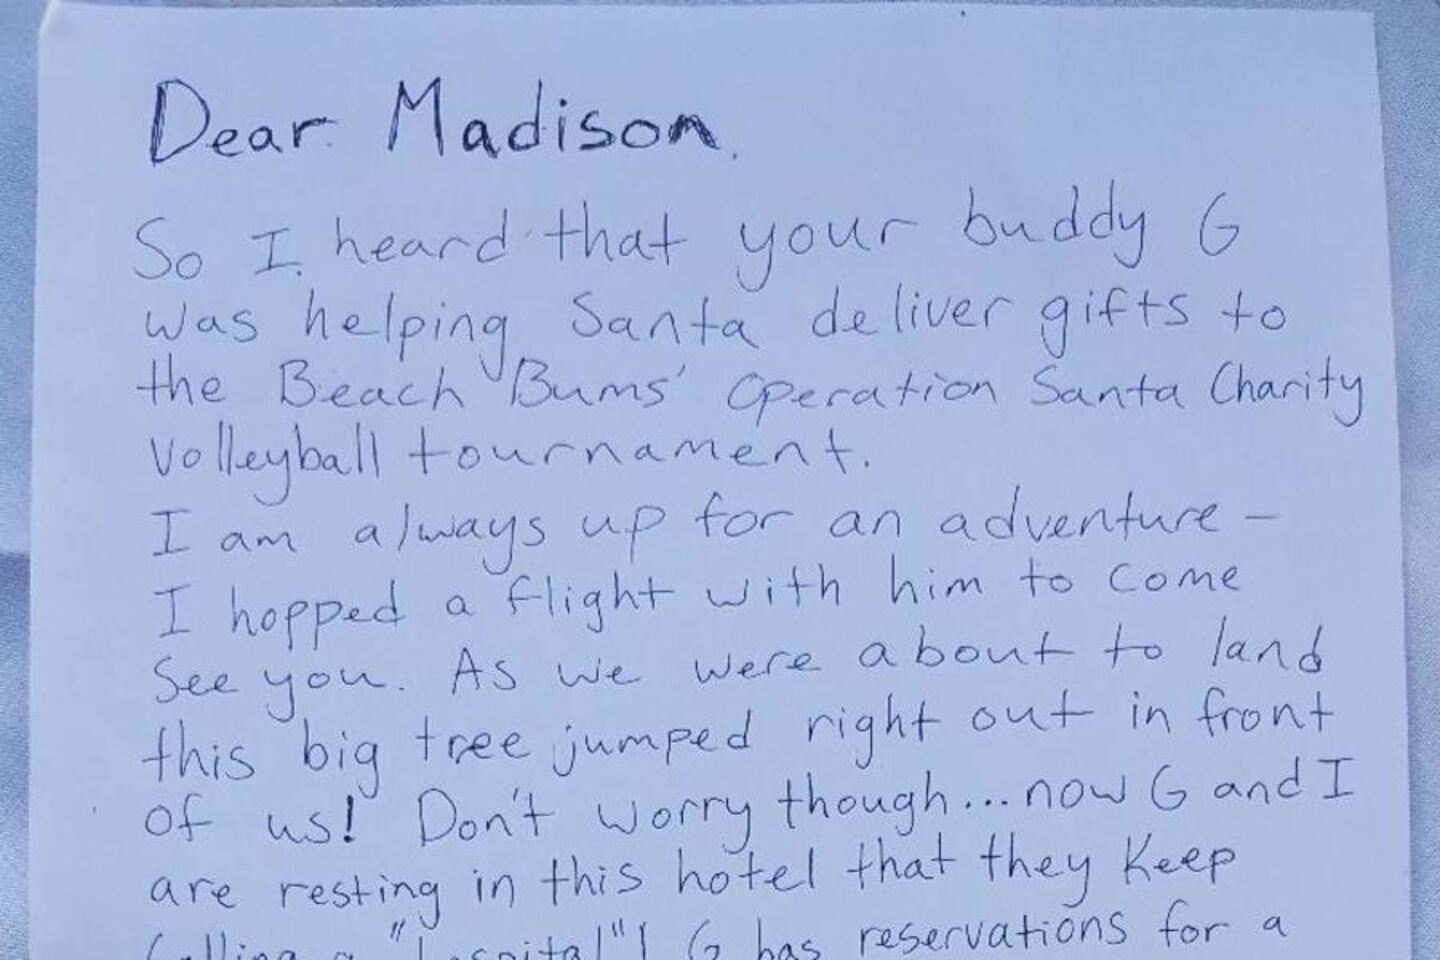 Dear Madison,
So I heard that your buddy G
was helping Santa deliver gifts to
the Beach Bums' Operation Santa Charity
Volleyball tournament.
I am always up for an adventure -
I hopped a flight with him to come
see you. As we were about to land
this big tree jumped right out in front
of us! Don't worry though... now G and I
are resting in this hotel that they keep
calling a "hospital"! G has reservations for a